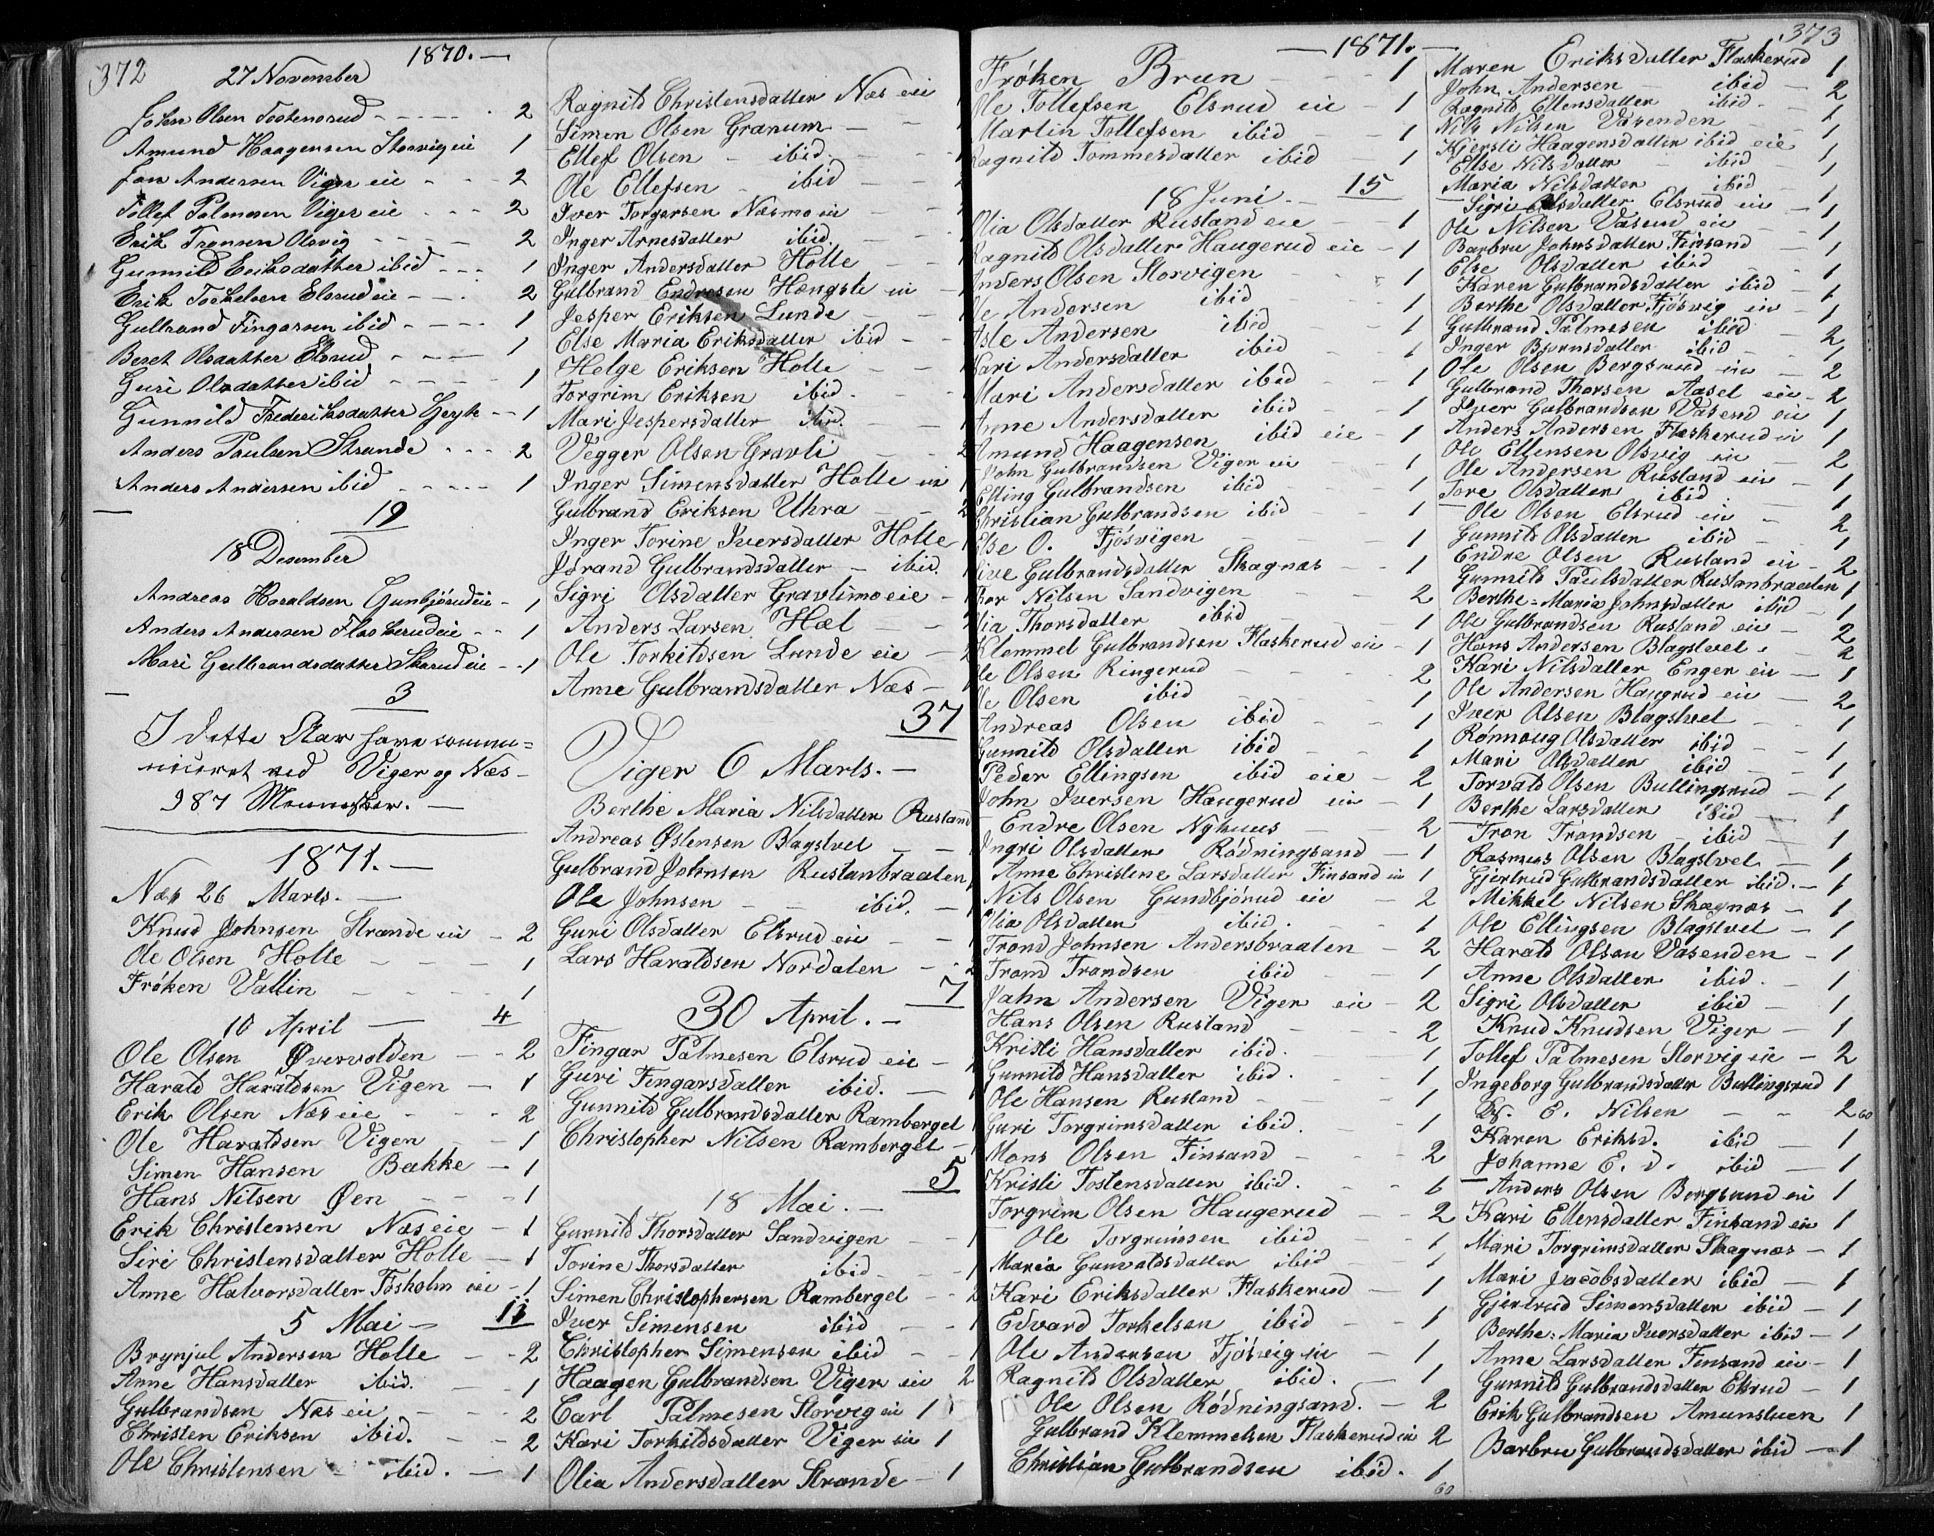 372
1870. —
27 November
Johan Olsen Tostensrud - - - - 2
Amund Haagensen Storvig eie 1
Jon Andersen Viger eie - - - 2
Tollef Palmesen Viger eie - - - 2
Erik Tronsen Olsvig - - - - 2
Gunnild Eriksdatter ibid - - - 1
Erik Torkelsen Elsrud eie - - - 2
Gulbrand Fingarsen ibid - - - - 1
Beret Olsdatter Elsrud - - - - 1
Guri Olsdatter ibid - - - - 1
Gunnild Frederiksdatter - - 1
Anders Paulsen Strande - - - 2
Anders Andersen ibid - - - - - 1
19
18 Desember
Andreas Haraldsen Gunbjørud eie - 1
Anders Andersen Flaskerud eie - - 1
Mari Gulbrandsdatter Skarud eie - - 1
3
I dette Aar have commu=
niceret ved Viger og Næs -
987 Mennesker. —
1871. —
Næs 26 Marts. —
Knud Johnsen Strande eie - 2
Ole Olsen Holte - - - - 1
Frøken Vallin - - - - - 1
10 April — 4
Ole Olsen Øvervolden - - 2
Harald Haraldsen Vigen - 1
Erik Olsen Næs eie - - - 2
Ole Haraldsen Vigen - - 1
Simen Hansen Bække - 1
Hans Nilsen Øen - - - 1
Erik Christensen Næs eie - 1
Siri Christensdatter Holte - 1
Anne Halvorsdatter Fosholm eie - 1
5 Mai - 11
Brynjul Andersen Holte - - 2
Anne Hansdatter ibid. - - 1
Gulbrandsen Næs eie - - - 2
Christen Eriksen ibid. - - - 2
Ole Christensen - ibid. - 1
Ragnild Christensdatter Næs eie
Simen Olsen Granum - - -
Ellef Olsen - ibid. - -
Ole Ellefsen - ibid - -
Iver Torgersen Næsmo eie - -
Inger Arnesdatter ibid. - -
Inger Andersdatter Holte - -
Gulbrand Endresen Hængsle eie -
Jesper Eriksen Lunde - -
Else Maria Eriksdatter ibid - -
Helge Eriksen Holte - -
Torgrim Eriksen ibid. - -
Mari Jespersdatter ibid. - -
Vegger Olsen Gravli - - 2
Inger Simensdatter Holte eie 1
Gulbrand Eriksen Uthra - - 2
Inger Torine Iversdatter Holte 1
Jørand Gulbrandsdatter - ibid. 1
Sigri Olsdatter Gravlimoeie - 1
Anders Larsen Hæl - - 2
Ole Torkildsen Lunde eie - 2
Anne Gulbramsdatter Næs - 1
37
Viger 6 Marts. —
Berthe Maria Nilsdatter Rusland
Andreas Østensen Blagstvet - - 1
Gulbrand Johnsen Ruslanbraaten 1
Ole Johnsen - - ibid. - 1
Guri Olsdatter Elsrud eie - - 1
Lars Haraldsen Nordalen - - 2
7
30 April. —
Fingar Palmesen Elsrud eie -
Guri Fingarsdatter ibid. -
Gunnild Gulbrandsdatter Rambergel 1
Christopher Nilsen Rambergel -
5
18 Mai. —
Gunnild Thorsdatter Sandvigen - - 1
Torine Thorsdatter ibid - - 1
Simen Christophersen Rambergel - - 2
Iver Simensen ibid - - 1
Christopher Simensen ibid - - 1
Haagen Gulbrandsen Viger eie 2
Carl Palmesen Storvig eie 1
Kari Torkildsdatter Viger eie 1
Olia Andersdatter Strande 1
1871. —
373
Frøken Brun - - - 1
Ole Tollefsen Elsrud eie - 1
Martin Tollefsen ibid - - 1
Ragnild Tommesdatter ibid - 1
18 Juni. — 15
Olia Olsdatter Rusland eie - 1
Ragnild Olsdatter Haugerud eie - 1
Anders Olsen Storvigen - - - 1
Ole Andersen ibid - - 1
Asle Andersen ibid - - 1
Kari Andersdatter ibid - - 1
Mari Andersdatter ibid - - 1
Anne Andersdatter ibid - - 1
Amund Haagensen ibid eie - 1
John Gulbrandsen Viger eie - - 1
Elling Gulbrandsen ibid - - 1
Christian Gulbrandsen ibid - - 1
Else O. Fjøsvigen - - - 1
Live Gulbrandsdatter Skagnæs - - 1
Thor Nilsen Sandvigen - - 2
Olia Thorsdatter ibid - - 1
Klemmel Gulbrandsen Flaskerud eie - 1
Ole Olsen Ringerud - - - 2
Ole Olsen ibid - - - 1
Andreas Olsen ibid - - 1
Gunnild Olsdatter ibid - - 1
Peder Ellingsen ibid eie - 2
John Iversen Haugerud eie - 1
Endre Olsen Nyhuus - - 2
Ingri Olsdatter Rødningsand - 1
Anne Christene Larsdatter Finsand eie 1
Nils Olsen Gundbjørud eie - 2
Olia Olsdatter ibid. - - 1
Trond Johnsen Andersbraaten - 2
Trond Trondsen ibid - - 1
Jahn Andersen Viger eie - 2
Hans Olsen Rusland - - - 2
Kristi Hansdatter ibid. - 1
Gunnild Hansdatter ibid. - 1
Ole Hansen Rusland - - - 1
Guri Torgrimsdatter ibid. - 1
Mons Olsen Finsand - - - 2
Kristi Tostensdatter ibid. - - 1
Torgrim Olsen Haugerud - - 2
Ole Torgrimsen ibid - - 1
Maria Gunvaldsdatter ibid - - 1
Kari Eriksdatter Flaskerud - - 1
Edvard Torkelsen ibid - - 1
Ole Andersen Fjøsvig eie - - 1
Ragnild Olsdatter ibid. - 1
Ole Olsen Rødningsand. - 2
Gulbrand Klemmelsen Flaskerud eie 2
Christian Gulbrandsen ibid. 1
60
Maren Eriksdatter Flaskerud 1
John Andersen - ibid - 2
Ragnild Ellensdatter ibid. - 1
Nils Nilsen Vasenden - - 1
Kjersti Haagensdatter ibid eie 1
Else Nilsdatter - ibid 1
Maria Nilsdatter ibid - 1
Sigri Olsdatter Elsrud eie - 1
Ole Nilsen Vasend eie - - 1
Barbru Johnsdatter Finsand 1
Else Olsdatter ibid - - 1
Karen Gulbrandsdatter ibid - 1
Berthe Olsdatter Fjøsvig eie - 1
Gulbrand Palmesen ibid 2
Inger Bjørnsdatter ibid - 1
Ole Olsen Bergsrud eie - 2
Gulbrand Thorsen Aasel eie - 2
Iver Gulbrandsen Vasend eie 1
Anders Andersen Flaskerud eie 1
Ole Ellensen Olsvig eie - 2
Ole Andersen Rusland eie - 1
Tore Olsdatter ibid - 1
Ole Olsen Elsrud eie - 2
Gunnild Olsdatter ibid - 1
Endre Olsen Rusland eie - 2
Gunnild Paulsdatter Ruslanbraaten 1
Berthe=Maria Johnsdatter ibid - 1
Ole Gulbrandsen Rusland eie - 2
Hans Andersen Blagstvet - 2
Kari Nilsdatter Enger eie - 1
Ole Andersen Haugrud eie - 2
Iver Olsen Blagstvet - - 1
Rønnoug Olsdatter ibid - 1
Mari Olsdatter ibid - 1
Torvald Olsen Bullingsrud - 1
Berthe Larsdatter ibid - 1
Tron Trondsen - ibid - 1
Rasmus Olsen Blagstvet - 1
Gjertrud Gulbrandsdatter ibid. - 1
Mikkel Nilsen Skagnæs - 1
Ole Ellingsen Blagstvet - 1
Harald Olsen Vasenden - 1
Anne Olsdatter ibid. - 1
Sigri Olsdatter ibid - 1
Knud Knudsen Viger - 1
Tollef Palmesen Storvig eie - 2
Ingeborg Gulbrandsdatter Bullingsrud 1
E. Nilsen - - 2 60
Karen Eriksd. ibid - 1
Johanne E. d. ibid - 1
Anders Olsen Bergsrud eie 1
Kari Ellensdatter Finsand eie 1
Mari Torgrimsdatter Skagnæs - 1
Mari Jacobsdatter ibid - 1
Gjertrud Simensdatter ibid - 1
Berthe=Maria Iversdatter ibid - 1
Anne Larsdatter Finsand eie - 1
Gunnild Gulbrandsdatter Elsrud - 1
Erik Gulbrandsen Amunsluen 1
Barbru Gulbrandsdatter ibid - 1